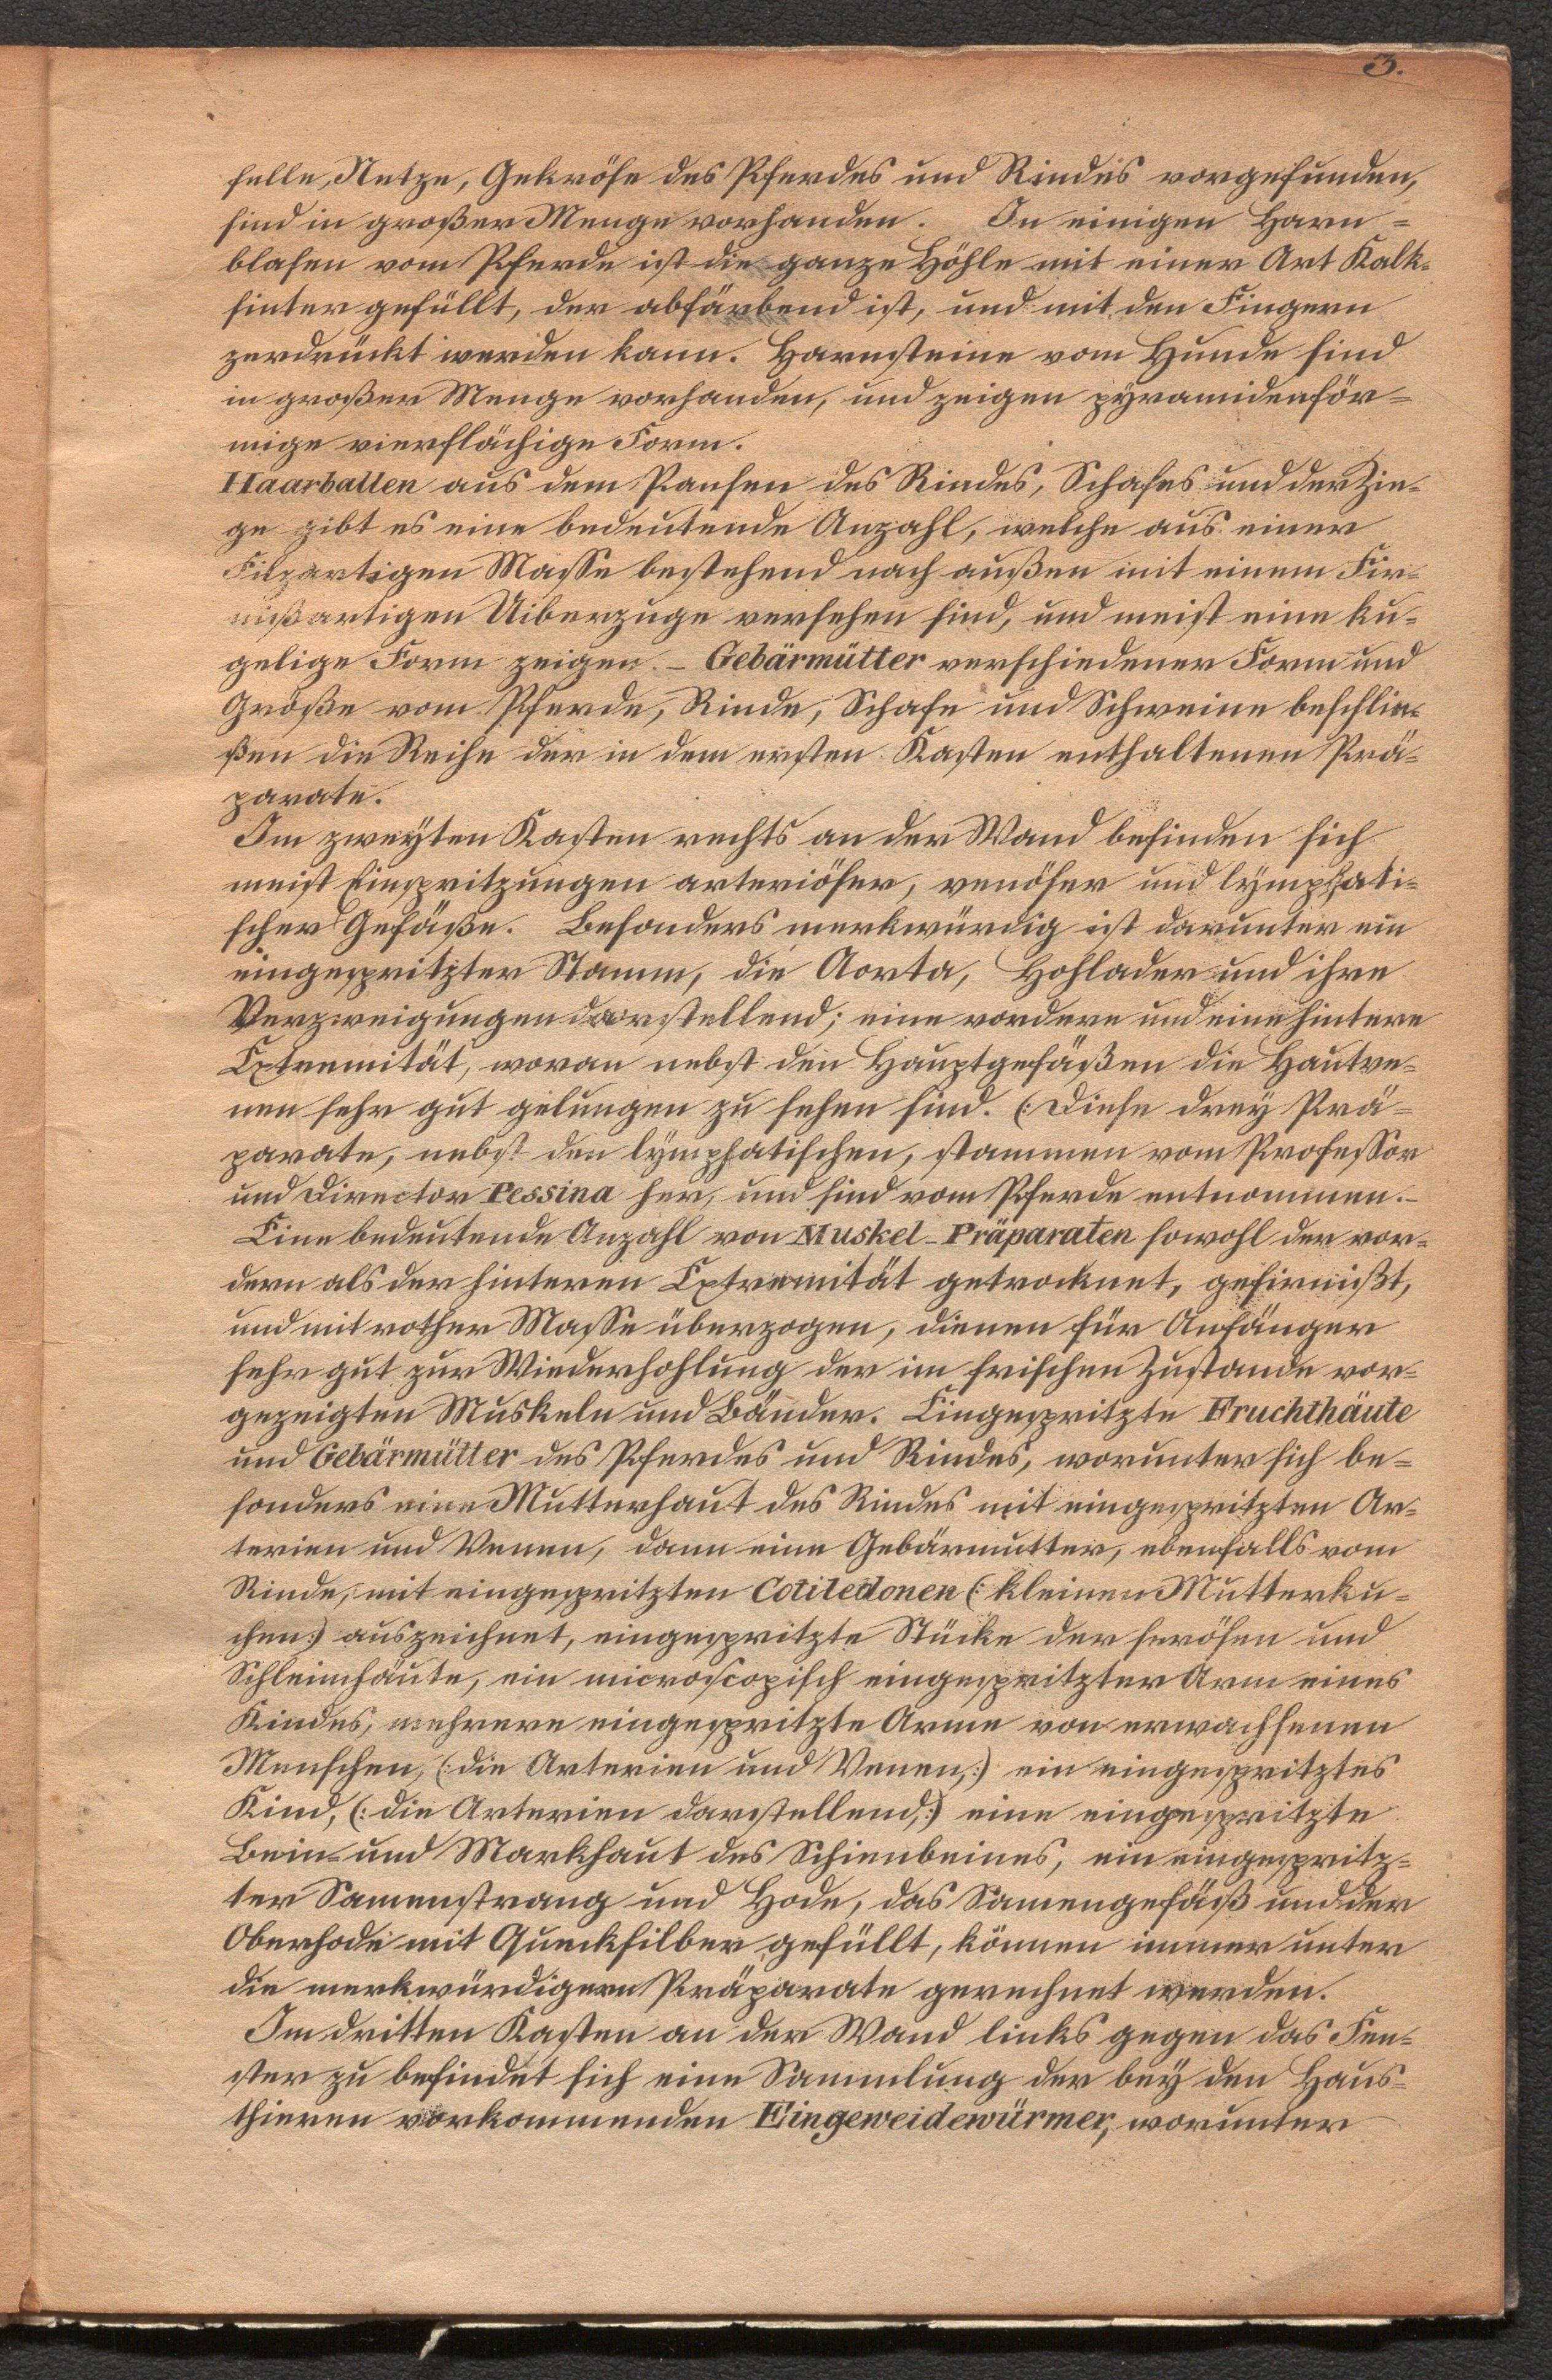 3.
felle, Netze, Gekröse des Pferdes und Rindes vorgefunden,
sind in großer Menge vorhanden. In einigen Harn=
blasen vom Pferde ist die ganze Höhle mit einer Art Kalk-
sinter gefüllt, der abfärbend ist, und mit den Fingern
zerdrückt werden kann. Harnsteine vom Hunde sind
in großer Menge vorhanden, und zeigen pyramidenför=
mige vierflächige Form.
Haarballen aus dem Pansen des Rindes, Schafes und der Zie-
ge gibt es eine bedeutende Anzahl, welche aus einer
Filzartigen Masse bestehend nach außen mit einem Fir-
nißartigen Uiberzuge versehen sind, und meist eine ku-
gelige Form zeigen. - Gebärmütter verschiedener Form und
Größe vom Pferde, Rinde, Schafe und Schweine beschlie-
ßen die Reihe der in dem ersten Kasten enthaltenen Prä-
parate.
Im zweyten Kasten rechts an der Wand befinden sich
meist Einspritzungen arteriöser, venöser und lymphati-
scher Gefäße. Besonders merkwürdig ist darunter ein
eingespritzter Stamm, die Aorta, Hohlader und ihre
Verzweigungen darstellend; eine vordere und eine hintere
Extremität, woran nebst den Hauptgefäßen die Hautve-
nen sehr gut gelungen zu sehen sind. (: Diese drey Prä=
parate, nebst den lymphatischen, stammen vom Professor
und Director Pessina her, und sind vom Pferde entnommen.-
Eine bedeutende Anzahl von Muskel-Präparaten sowohl der vor-
dern als der hinteren Extremität getrocknet, gefirnißt,
und mit rother Masse überzogen, dienen für Anfänger
sehr gut zur Wiederhohlung der im frischen Zustande vor-
gezeigten Muskeln und Bänder. Eingespritzte Fruchthäute
und Gebärmütter des Pferdes und Rindes, worunter sich be=
sonders eine Mutterhaut des Rindes mit eingespritzten Ar-
terien und Venen, dann eine Gebärmutter, ebenfalls vom
Rinde, mit eingespritzten Cotiledonen (: kleinen Mutterku-
chen:) auszeichnet, eingespritzte Stücke der serösen und
Schleimhäute, ein microscopisch eingespritzter Arm eines
Kindes, mehrere eingespritzte Arme von erwachsenen
Menschen, (: die Arterien und Venen,:) ein eingespritztes
Kind, (: die Arterien darstellend,:) eine eingespritzte
Bein- und Markhaut des Schienbeines, ein eingespritz=
ter Samenstrang und Hode, das Samengefäß und der
Oberhode mit Quecksilber gefüllt, können immer unter
die merkwürdigern Präparate gerechnet werden.
Im dritten Kasten an der Wand links gegen das Fen-
ster zu befindet sich eine Sammlung der bey den Haus=
thieren vorkommenden Eingeweidewürmer, worunter